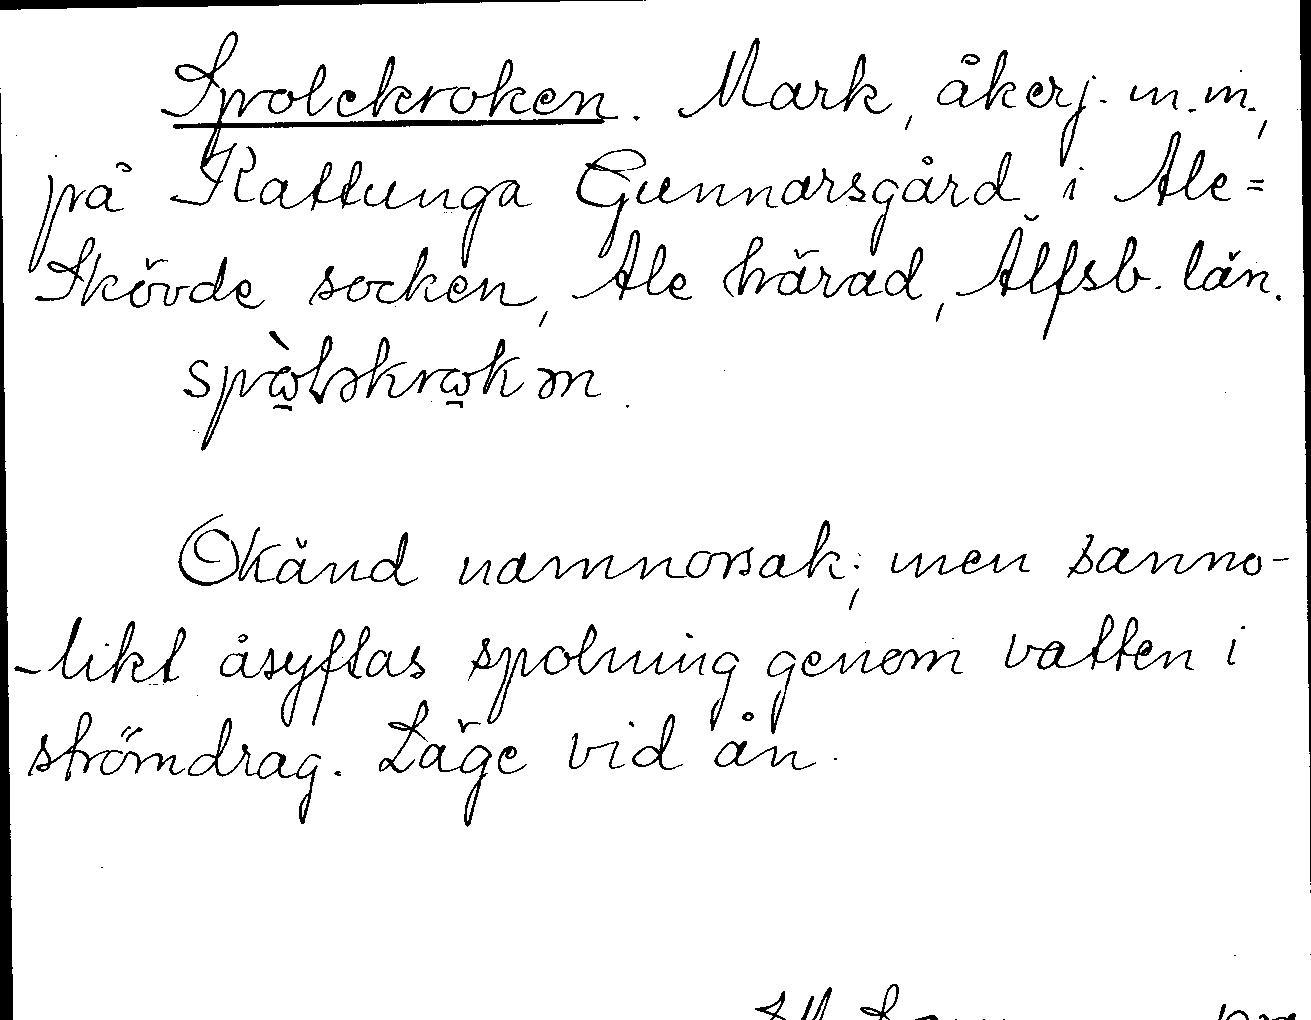 Spolekroken. Mark, åkerj. m.m.,
på Kattunga Gunnarsgård i Ale=
Skövde socken, Ale härad, Älfsb. län.
spɷ̀ləkrɷkən.
Okänd namnorsak; men sanno-
-likt åsyftas spolning genom vatten i
strömdrag. Läge vid ån.